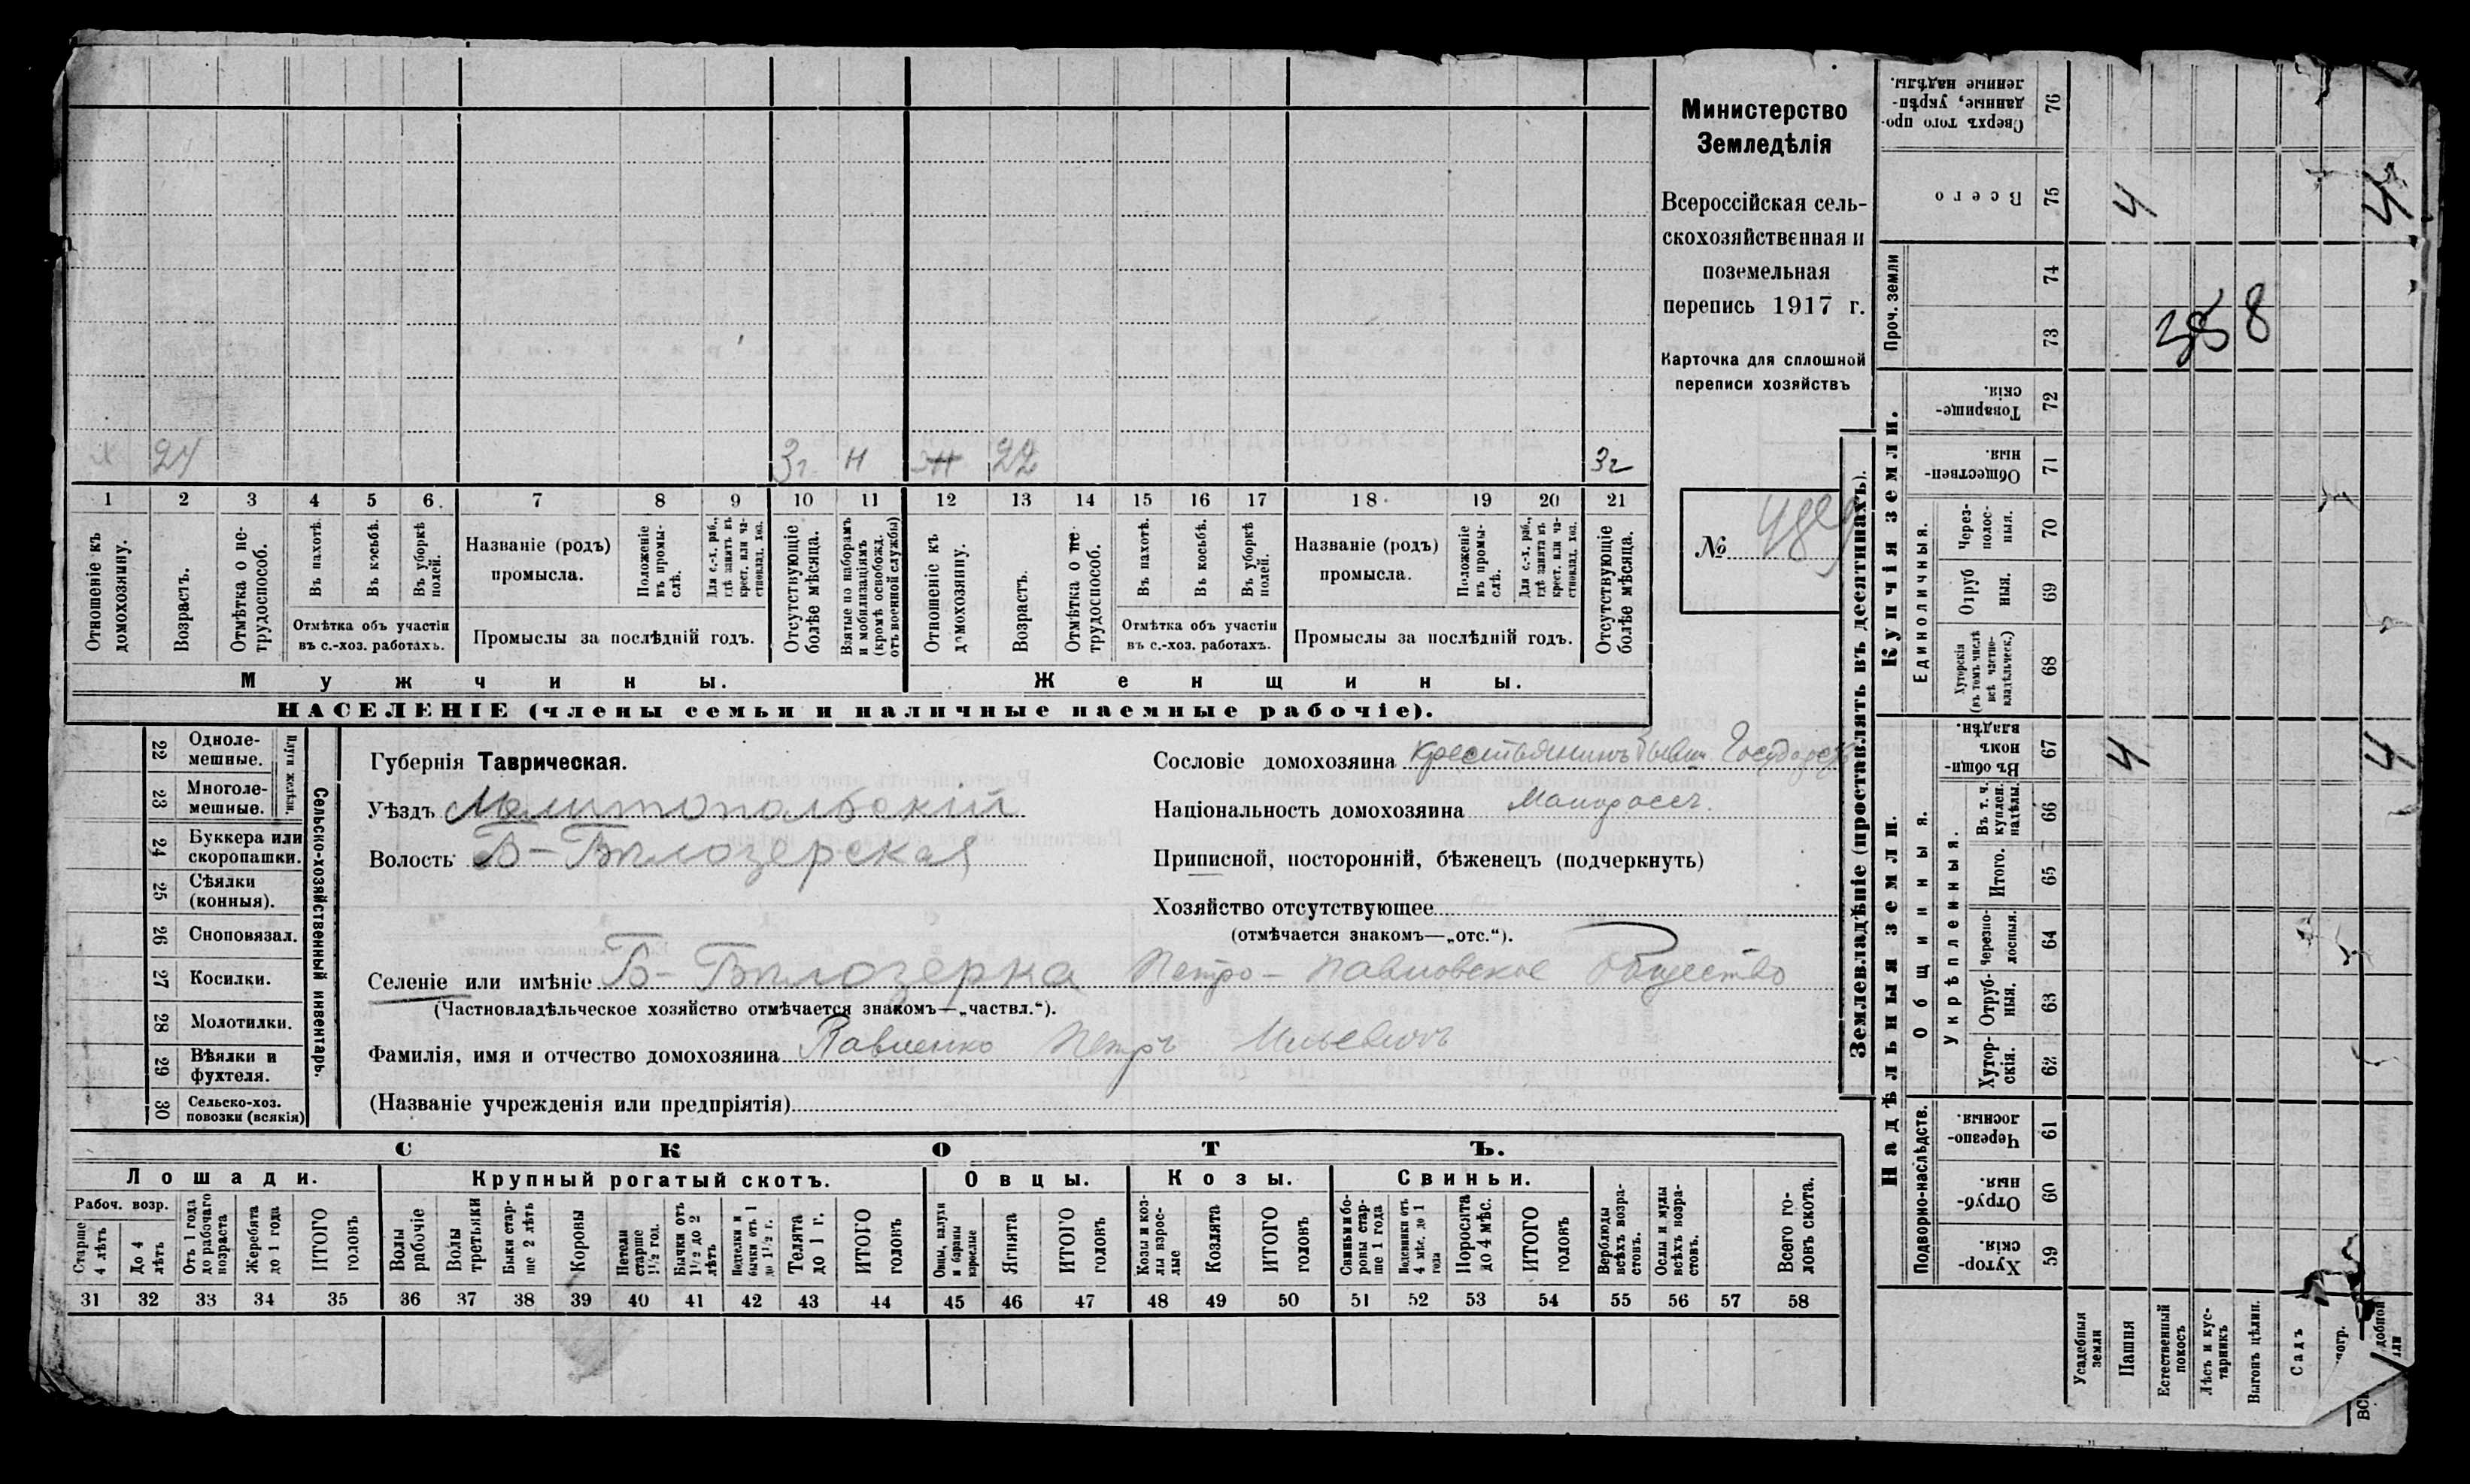 Х 24 3 г. н Ж 22 3 г
1 2 3 4 5 6. 7 8 9 10 11 12 13 14 15 16 17 18. 19 20 21
Отношеніе къ домохозяину.
Возрастъ.
Отмѣтка о не-трудоспособ.
Въ пахотѣ.
Въ косьбѣ.
Въ уборкѣ полей.
Отмѣтка объ участіи
въ с.-хоз. работахъ.
Названіе (родъ)
промысла.
Положеніе въ промы-слѣ.
Для с.-х. раб., гдѣ занятъ въ крест. или ча-стновлад. хоз.
Промыслы за послѣдній годъ.
Отсутствующіе болѣе мѣсяца.
Взятые по наборамъ и мобилизаціямъ (кромѣ освобожд. отъ военной службы)
Отношеніе къ домохозяину.
Возрастъ.
Отмѣтка о не-трудоспособ.
Въ пахотѣ.
Въ косьбѣ.
Въ уборкѣ полей.
Отмѣтка объ участіи
въ с.-хоз. работахъ.
Названіе (родъ)
промысла.
Положеніе въ промы-слѣ.
Для с.-х. раб., гдѣ занята въ крест. или ча-стновлад. хоз.
Промыслы за послѣдній годъ.
Отсутствующіе болѣе мѣсяца.
Мужчины. Женщины.
НАСЕЛЕНІЕ (члены семьи и наличные наемные рабочіе).
Министерство
Земледѣлія
Всероссійская сель-
скохозяйственная и
поземельная
перепись 1917 г.
Карточка для сплошной
переписи хозяйствъ
№ 489
22 Одноле-мешные.
23 Многоле-мешные.
Плуги желѣзн.
24 Буккера или скоропашки.
25 Сѣялки (конныя).
26 Сноповязал.
27 Косилки.
28 Молотилки.
29 Вѣялки и фухтеля.
30 Сельско-хоз. повозки (всякія)
Сельско-хозяйственный инвентарь.
Губернія Таврическая.
Уѣздъ Мелитопольскій
Волость Б-Бѣлозерская
Сословіе домохозяина крестьянинъ бывш. Государст
Національность домохозяина Малоросс.
Приписной, посторонній, бѣженецъ (подчеркнуть)
Хозяйство отсутствующее
(отмѣчается знакомъ—„отс.“).
Селеніе или имѣніе Б-Бѣлозерка Петро-Павловское Общество
(Частновладѣльческое хозяйство отмѣчается знакомъ—„частвл.“).
Фамилія, имя и отчество домохозяина Павленко Петръ Ильевичъ
(Названіе учрежденія или предпріятія)
СКОТЪ.
Лошади. Крупный рогатый скотъ. Овцы. Козы. Свиньи.
Рабоч. возр.
Старше 4 лѣтъ
До 4 лѣтъ
Отъ 1 года до рабочаго возраста
Жеребята до 1 года
ИТОГО головъ
Волы рабочіе
Волы третьяки
Быки стар-ше 2 лѣтъ
Коровы
Нетели старше 1½ год.
Бычки отъ 1½ до 2 лѣтъ
Подтелки и бычки отъ 1 до 1½ г.
Телята до 1 г.
ИТОГО головъ
Овцы, валухи и бараны взрослые
Ягнята
ИТОГО головъ
Козы и коз-лы взрос-лые
Козлята
ИТОГО головъ
Свиньи и бо-ровы стар-ше 1 года
Подсвинки отъ 4 мѣс. до 1 года
Поросята до 4 мѣс.
ИТОГО головъ
Верблюды всѣхъ возра-стовъ.
Ослы и мулы всѣхъ возра-стовъ.
Всего го-ловъ скота.
31 32 33 34 35 36 37 38 39 40 41 42 43 44 45 46 47 48 49 50 51 52 53 54 55 56 57 58
Землевладѣніе (проставлять въ десятинахъ).
Купчія земли.
Надѣльныя земли.
Проч. земли
Единоличныя.
Общинныя.
Укрѣпленныя.
Подворно-наслѣдств.
Сверхъ того про-данные, укрѣп-ленные надѣлы. 76
Всего 75 4 4
74
73 358
Товарище-скія. 72
Обществен-ныя. 71
Через-полос-ныя. 70
Отруб ныя. 69
Хуторскія (въ томъ числѣ всѣ частно-владѣльческ.) 68
Въ общин номъ владѣн. 67 4 4
Въ т. ч. куплен. надѣлы. 66
Итого. 65
Черезпо-лосныя. 64
Отруб-ныя. 63
Хутор-скія. 62
Черезпо-лосныя. 61
Отруб-ныя. 60
Хутор-скія. 59
Усадебныя земли
Пашня
Естественный покосъ
Лѣсъ и кус-тарникъ
Выгонъ цѣлин.
Садъ